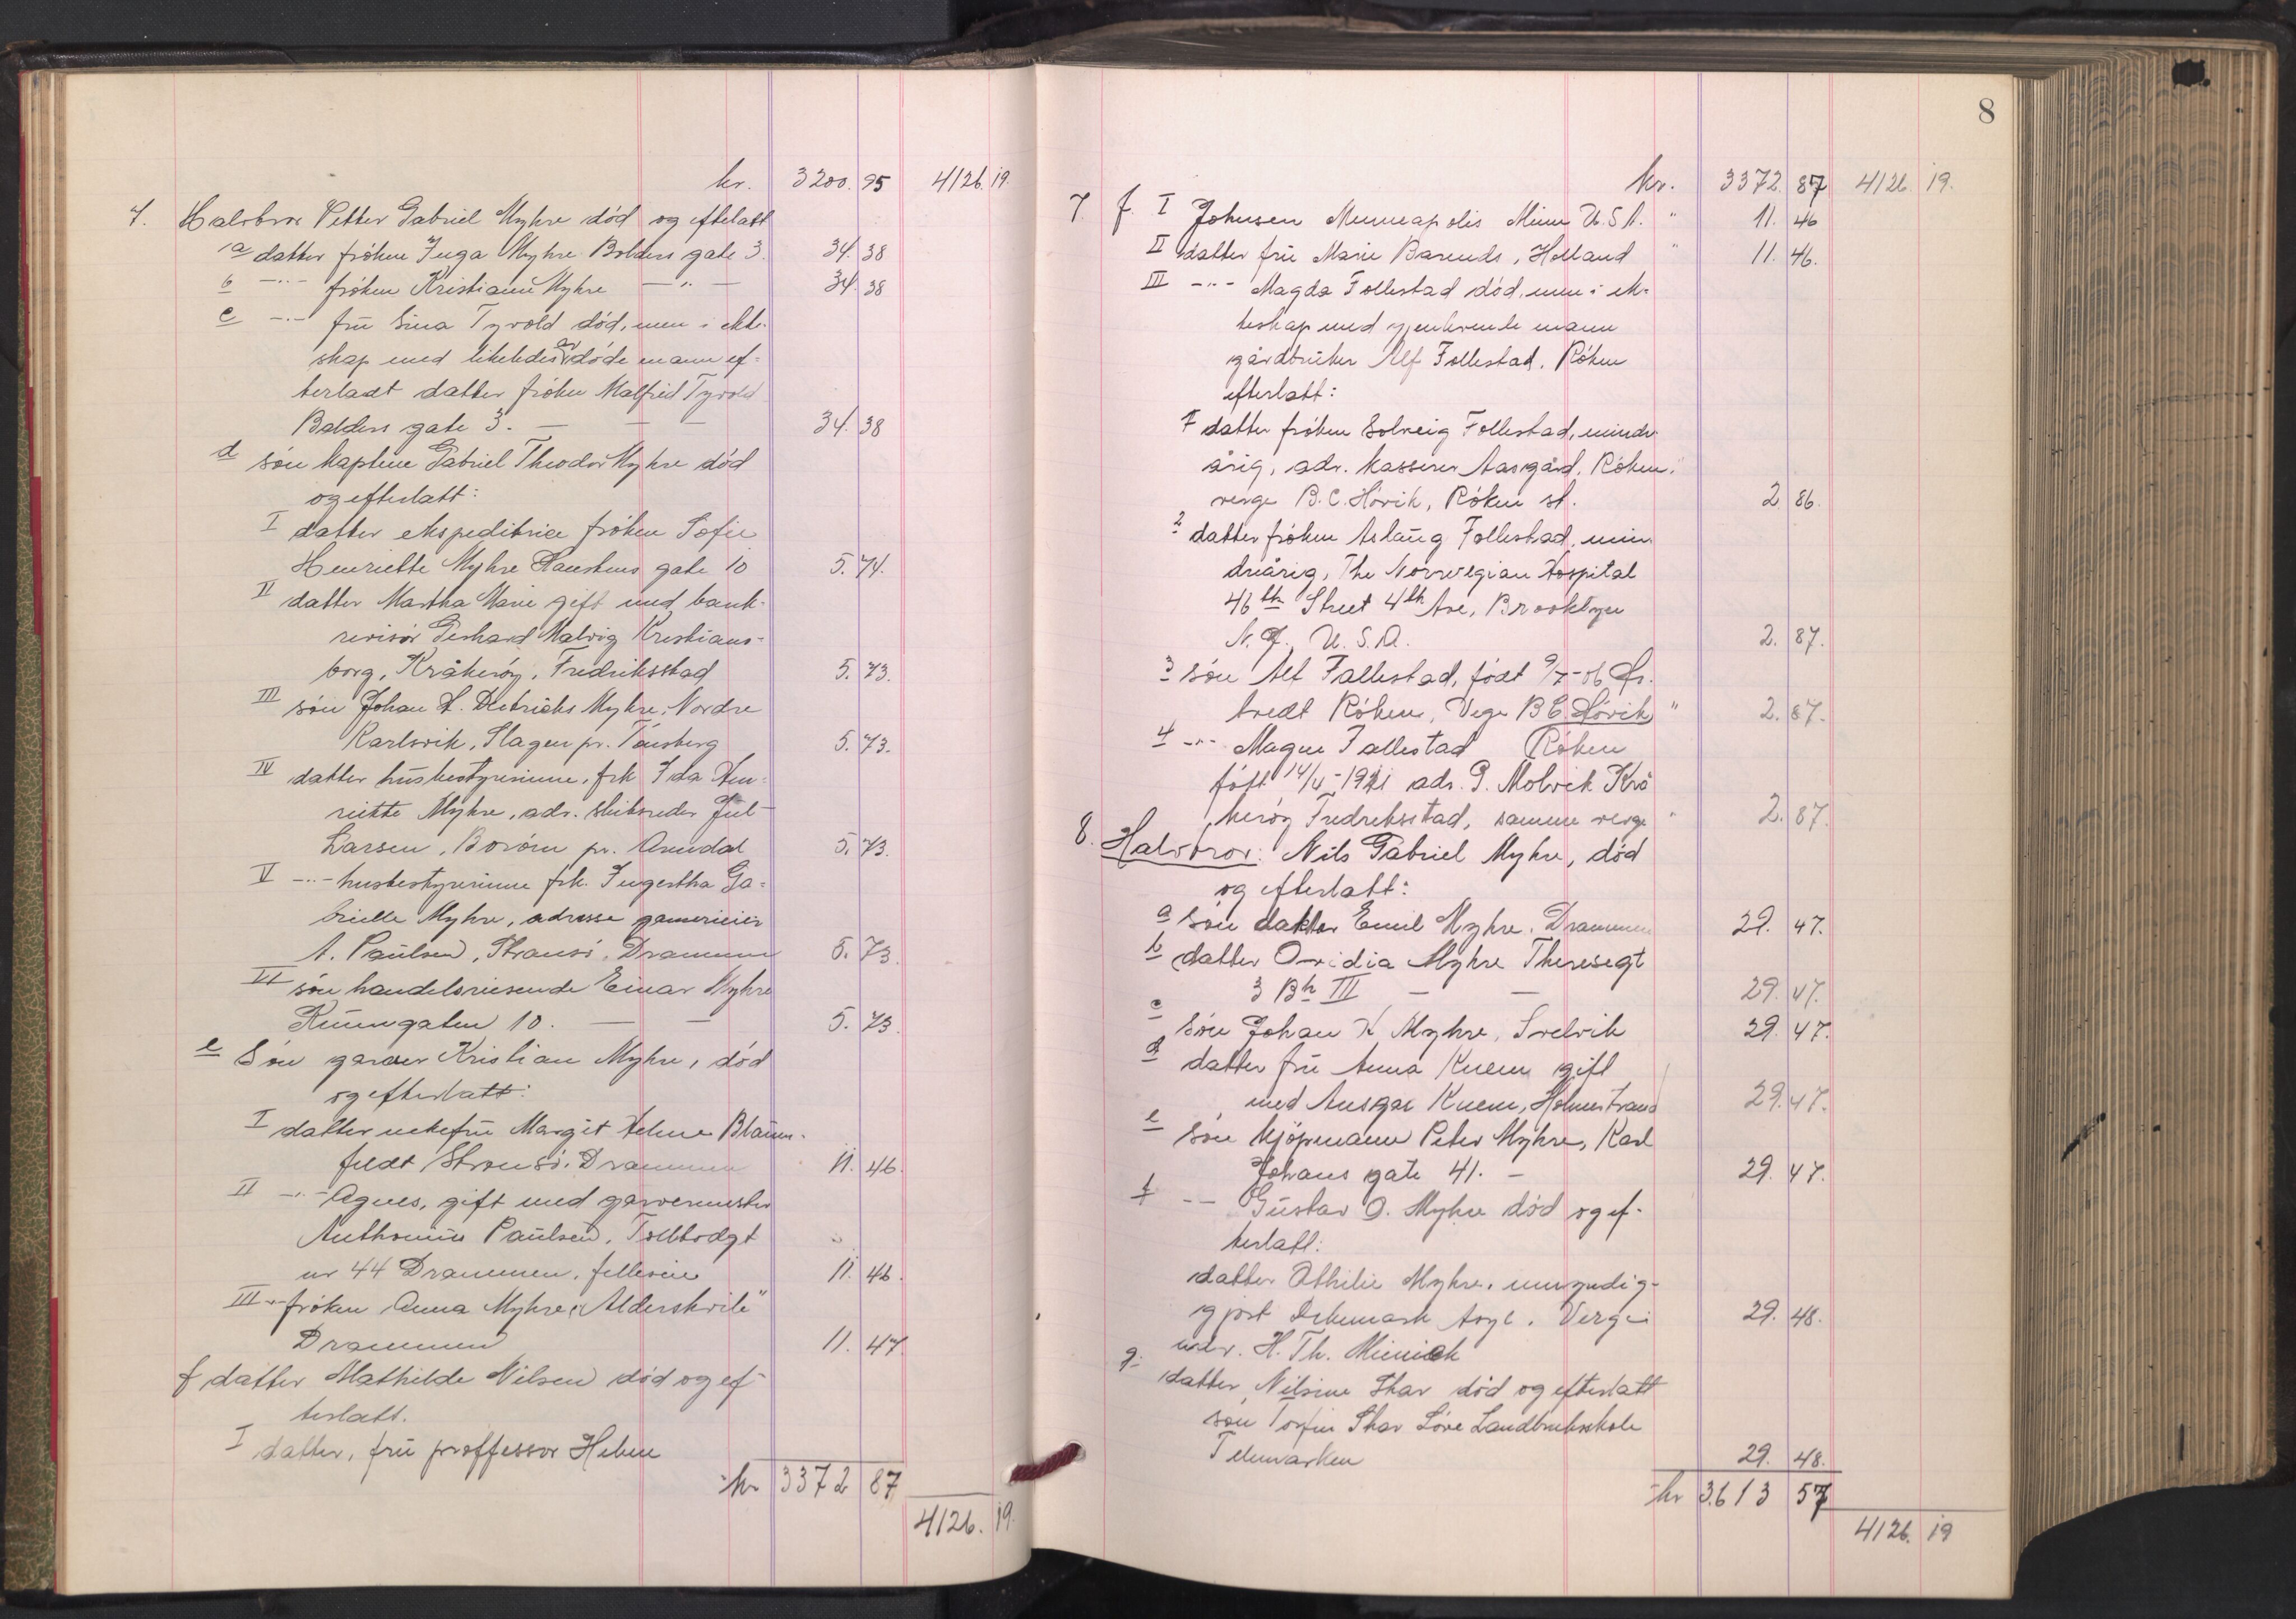 kr. 3200. 95 4126. 19.
7. Halvbror Petter Gabriel Myhre död og efterlatt
a datter fröken Inga Myhre Balders gate 3. 34. 38
b -"- fröken Kristiane Myhre — " — 34. 38
c -"- fru Sina Tyvold död, men i ekte-
skap med likeledes avdöde mann ef-
terladt datter fröken Malfrid Tyvold
Balders gate 3. — — — 34. 38
d sön kaptein Gabriel Theodor Myhre död
og efterlatt:
I datter ekspeditrice fröken Sofie
Henriette Myhre gate 10 5. 74.
II datter Martha Marie gift med bank-
revisor Gerhard Malvig Kristians-
borg, Kråkeröy, Fredriksstad 5. 73.
III sön Johan L. Dietrichs Myhre, Nordre
Karlsvik, Slagen pr. Tönsberg 5. 73.
IV datter husbestyrerinne, frk Ida Hen-
riette Myhre, adr. skibsreder Jul
Larsen, Boröen pr. Arendal 5. 73.
V -"- husbestyrerinne frk. Ingertha Ga-
brielle Myhre, adresse
A. Paulsen, Strömsö, Drammen 5. 73.
VI sön handelsreisende Einar Myhre
10. — — 5. 73.
e Sön garver Kristian Myhre, död
og efterlatt:
I datter enkefru Margit Helene Blaum-
feldt Strömsö. Drammen 11. 46.
II -"- Agnes, gift med garvermester
Anthonius Paulsen, Tollbodgt
nr 44 Drammen, felleseie 11. 46.
III -"- fröken Anna Myhre, "Aldershvile"
Drammen 11. 47.
f datter Mathilde Nilsen död og ef-
terlatt.
I datter, fru proffessor Helene
kr 3372 87
4126. 19.
8
kr. 3372. 87 4126. 19.
7. f. I Johnsen Minneapolis Minn U.S.A. " 11. 46
II datter fru Marie Barends, Holland " 11. 46.
III -"- Magda Follestad död, men i ek-
teskap med gjenlevende mann
gårdbruker Alf Follestad. Röken
efterlatt:
1 datter fröken Solveig Follestad, mindre-
årig, adr. kasserer Aasgård. Röken.
verge B.C. Hövik, Röken st. 2. 86.
2 datter fröken Aslaug Follestad, min-
dreårig, The Norwegian Hospital
46th Street 4th Ave, Brooklyn
N.J. U.S.A. 2. 87.
3 sön Alf Follestad, födt 9/7-06
bredt Röken, Verge B C Hövik " 2. 87.
4 -"- Magne Follestad Röken
födt 14/4-1921 adr. G. Molvik Krå
keröy Fredriksstad, samme verge " 2. 87.
8. Halvbror: Nils Gabriel Myhre, död
og efterlatt:
a sön doktor Emil Myhre. Drammen 29. 47.
b datter Ovidia Myhre Theresegt
3 Bh III — — 29. 47.
c sön Johan K Myhre, Svelvik 29. 47.
d datter fru Anna Knem gift
med Ansgar Knem, Holmestrand 29. 47.
e sön kjöpmann Peter Myhre, Karl
Johans gate 41. — 29. 47.
f -"- Gustav O. Myhre död og ef-
terlatt:
datter Othilie Myhre, umyndig-
gjort Dikemark Asyl. Verge 29. 48.
H. Th. Minick
g. datter Nilsine Skar död og efterlatt
sön Torfin Skar Söve Landbrukskole
Telemarken 29. 48.
kr 3613 57
4126. 19